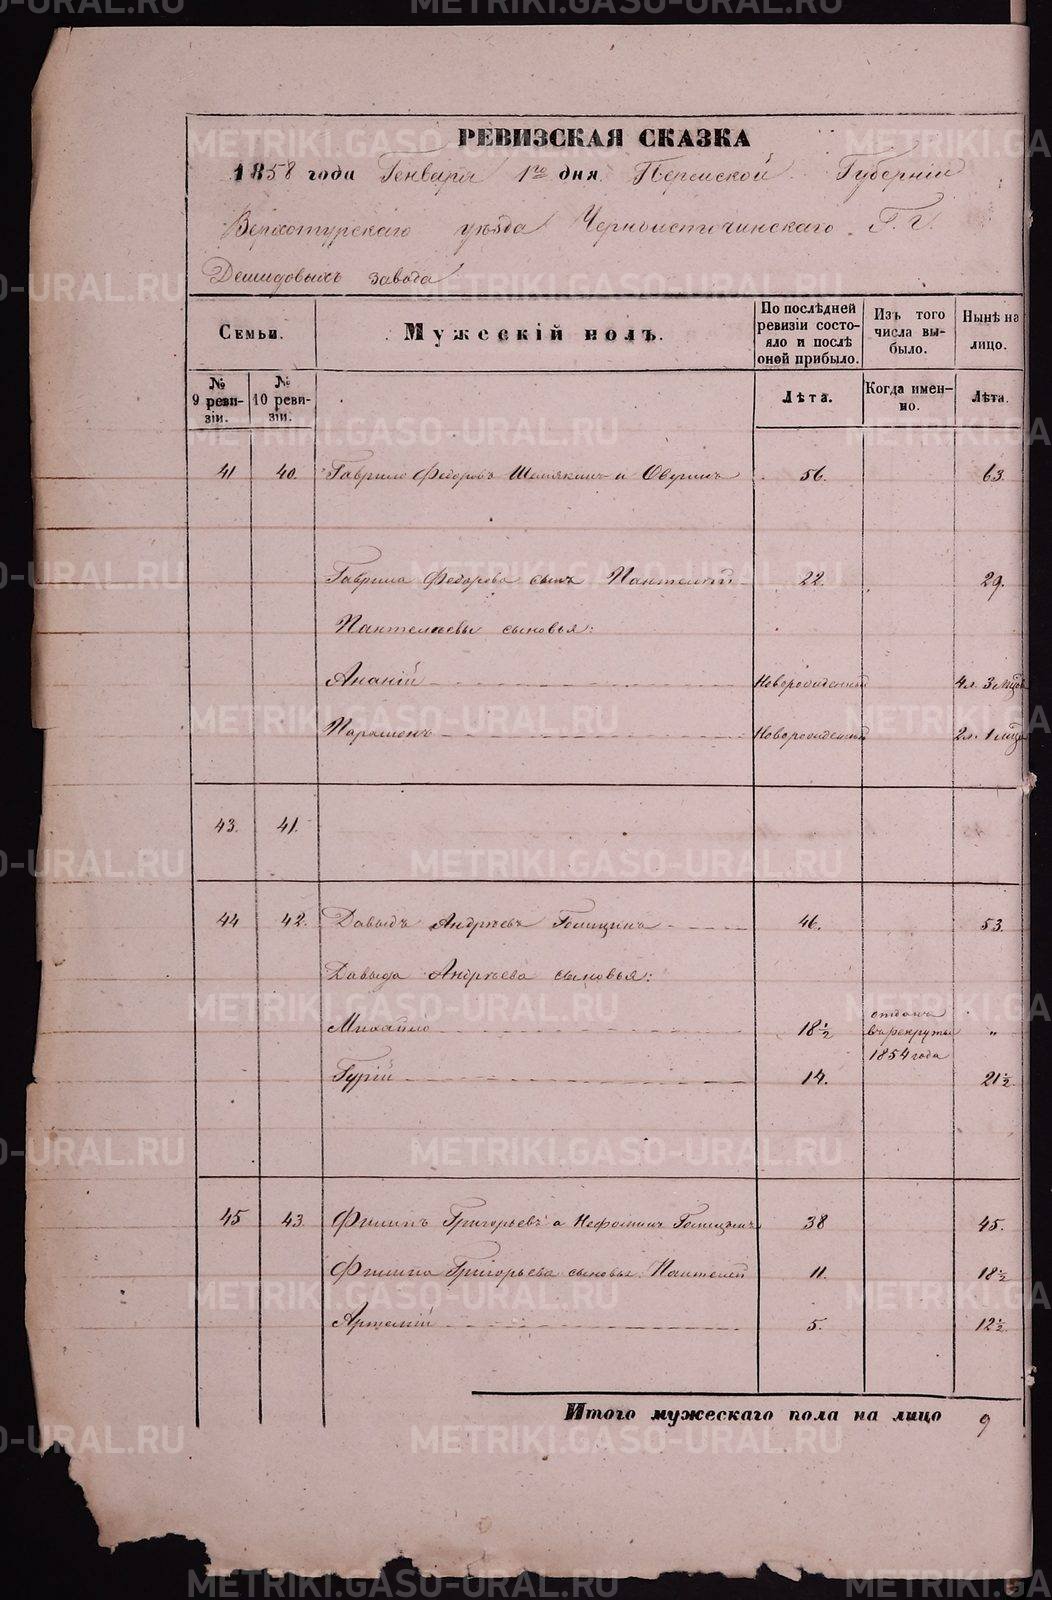 РЕВИЗСКАЯ СКАЗКА
1858 года Генваря 1го дня Пермской Губерніи
Верхотурскаго уѣзда Черноисточинскаго Г.г.
Демидовыхъ завода
Семьи. Мужескій полъ. По послѣдней ревизіи состояло и послѣ оной прибыло. Изъ того числа выбыло. Нынѣ на лицо.
№ 9 ревизіи. № 10 ревизіи. Лѣта. Когда именно. Лѣта.
41 40. Гаврило Федоровъ Шемякинъ и Овчинъ 56. 63.
Гаврила Федорова сынъ Пантелей 22. 29.
Пантелѣевы сыновья:
Ананій новорожденный 4 л. 3 мцов
Парамонъ новорожденный 2 л. 1 мцъ
43. 41.
44 42. Давыдъ Андрѣевъ Голицинъ 46. 53.
Давыда Андрѣева сыновья:
Михайло 18½ отданъ въ рекруты 1854 года „
Гурій 14. 21½
45 43. Филипъ Григорьевъ а Нефотинъ Голицынъ 38 45.
Филипа Григорьева сыновья: Пантелей 11. 18½
Артемій 5. 12½
Итого мужескаго пола на лицо 9
METRIKI.GASO-URAL.RU